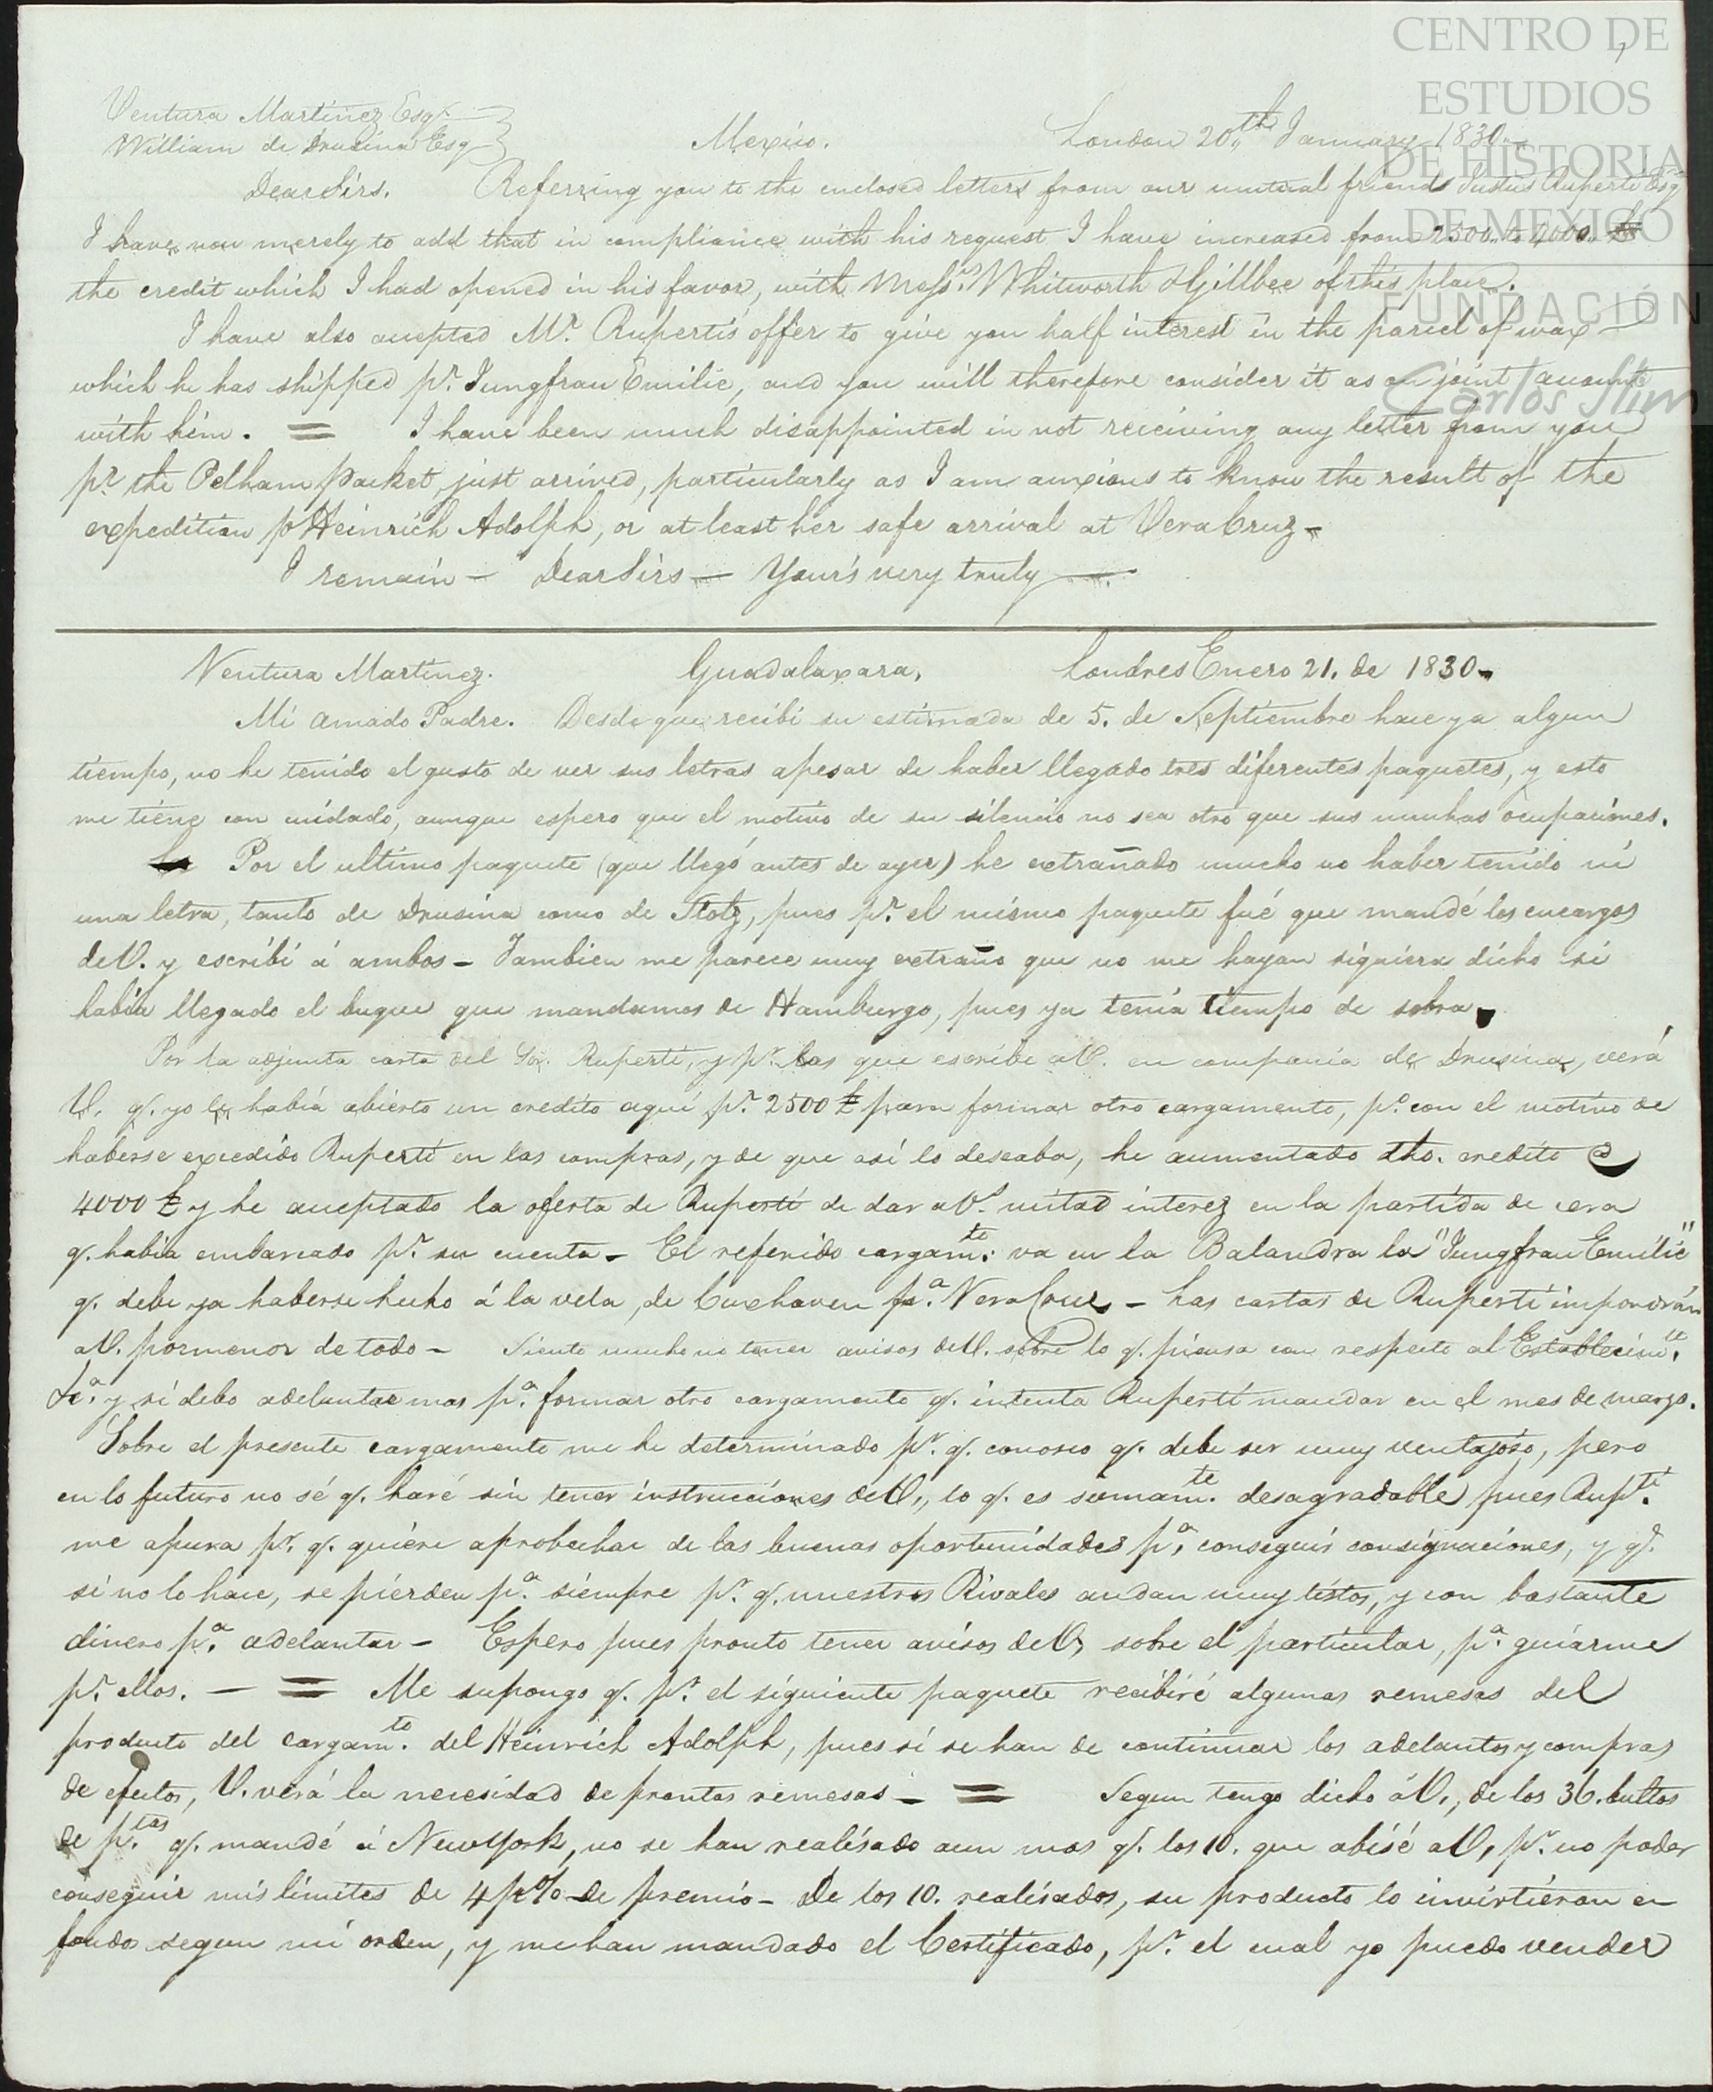 CENTRO DE
ESTUDIOS
DE HISTORIA
DE MEXICO
FUNDACIÓN
Carlos Slim
Ventura Martinez Esqr.
William de Drusina Esq
Mexico.
London 20th January 1830
Dear Sirs. Referring you to the enclosed letters from our mutual friend Justus Ruperti Esqr
I have now merely to add that in compliance with his request I have increased from 2500 to 4000 £
the credit which I had opened in his favor, with Messrs. Whitworth & Gillbee of this place.
I have also accepted Mr. Ruperti's offer to give you half interest in the parcel of wax
which he has shipped pr. Jungfrau Emilie, and you will therefore consider it as on joint account
with him. = I have been much disappointed in not receiving any letter from you
pr. the Pelham packet, just arrived, particularly as I am anxious to know the result of the
expedition p Heinrich Adolph, or at least her safe arrival at Vera Cruz -
I remain - Dear Sirs - Your's very truly -
Ventura Martinez. Guadalaxara, Londres Enero 21. de 1830-
Mi amado Padre. Desde que recibi su estimada de 5. de Septiembre hace ya algun
tiempo, no he tenido el gusto de ver sus letras apesar de haber llegado tres diferentes paquetes, y esto
me tiene con cuidado, aunque espero que el motivo de su silencio no sea otro que sus muchas ocupaciones.
Por el ultimo paquete (que llegó antes de ayer) he extrañado mucho no haber tenido ni
una letra, tanto de Drusina como de Stolz, pues pr. el mismo paquete fué que mandé los encargos
de V. y escribi á ambos - Tambien me parece muy extraño que no me hayan siquiera dicho si
habia llegado el buque que mandamos de Hamburgo, pues ya tenia tiempo de sobra.
Por la adjunta carta del Sor. Ruperti, y pr. las que escribe a V. en compañia de Drusina, verá
V. q. yo le habia abierto un credito aqui pr. 2500 £ para formar otro cargamento, po. con el motivo de
haberse excedido Ruperti en las compras, y de que asi lo deseaba, he aumentado dho. credito @
4000 £ y he aceptado la oferta de Ruperti de dar a Vs. mitad interez en la partida de cera
q. habia embarcado pr. su cuenta - El referido cargamto. va en la Balandra la "Jungfrau Emilie"
q. debe ya haberse hecho á la vela, de Cuxhaven pa. Vera Cruz - Las cartas de Ruperti impondrán
a V. pormenor de todo - Siento mucho no tener avisos de V. sobre lo q. piensa con respecto al Establecimto.
&a. y si debo adelantar mas pa. formar otro cargamento q. intenta Ruperti mandar en el mes de marzo.
Sobre el presente cargamento me he determinado pr. q. conosco q. debe ser muy ventajoso, pero
en lo futuro no sé q. haré sin tener instrucciones de V., lo q. es sumamte. desagradable pues Rupti.
me apura pr. q. quiere aprobechar de las buenas oportunidades pa. conseguir consignaciones, y q.
si no lo hace, se pierden pa. siempre pr. q. nuestros Rivales andan muy listos, y con bastante
dinero pa. adelantar - Espero pues pronto tener avisos de V, sobre el particular, pa. guiarme
pr. ellos. - = Me supongo q. pr. el siguiente paquete recibiré algunas remesas del
producto del cargamto. del Heinrich Adolph, pues si se han de continuar los adelantos y compras
de efectos, V. verá la necesidad de prontas remesas - = Segun tengo dicho á V., de los 36. bultos
de ptas. q. mandé á New York, no se han realisado aun mas q. los 10. que abisé a V, pr. no poder
conseguir mis limites de 4 pr% de premio - De los 10. realisados, su producto lo invirtieron en
fondos segun mi orden, y me han mandado el Certificado, pr. el cual yo puedo vender